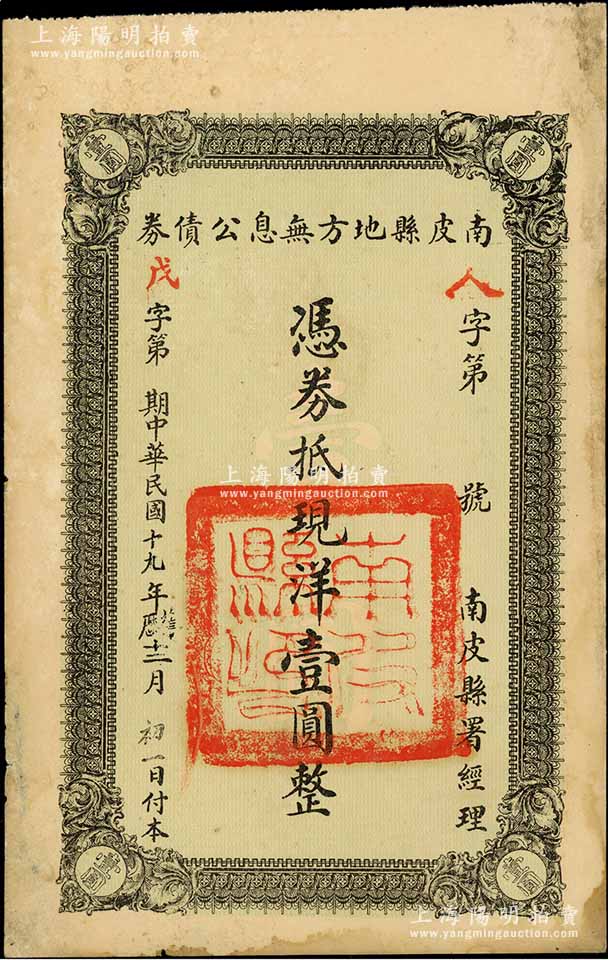 上海陽明拍賣
www.yangmingauction.com
南皮縣地方無息公債券
人字第 號 南皮縣署經理
憑券抵現洋壹圓整
戊字第 期中華民國十九年舊歷十二月初一日付本
壹圓
壹圓
壹圓
壹圓
南皮縣印
上海陽明拍賣
www.yangmingauction.com
上海陽明拍賣
www.yangmingauction.com